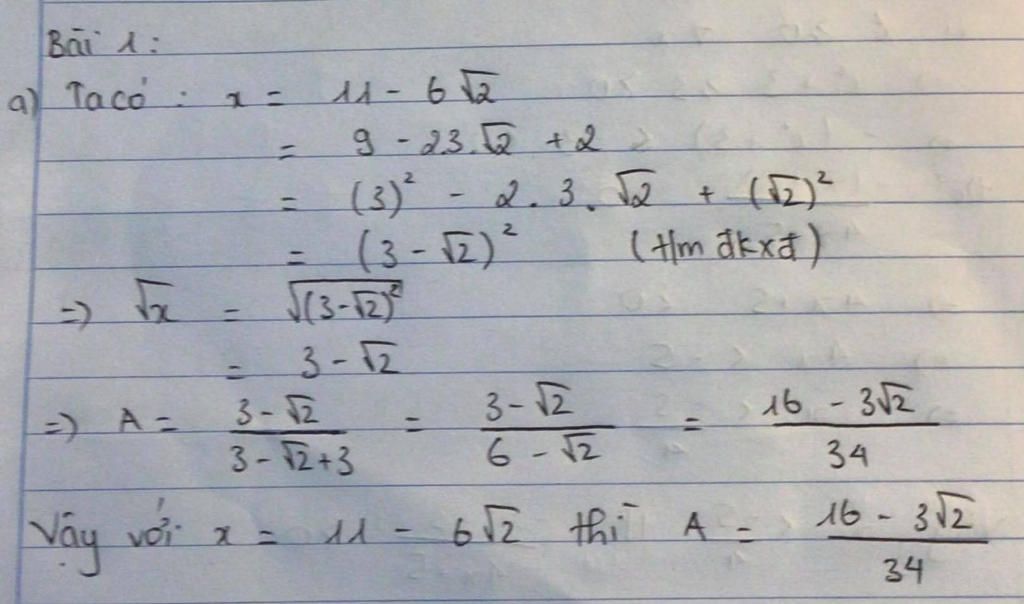 Bài 1:
a) Ta có: x = 11 - 6√2
= 9 - 2.3.√2 + 2
= (3)² - 2.3.√2 + (√2)²
= (3 - √2)² (t/m đkxđ)
=> √x = √(3-√2)²
= 3 - √2
=> A = (3 - √2)/(3 - √2 + 3) = (3 - √2)/(6 - √2) = (16 - 3√2)/34
Vậy với x = 11 - 6√2 thì A = (16 - 3√2)/34